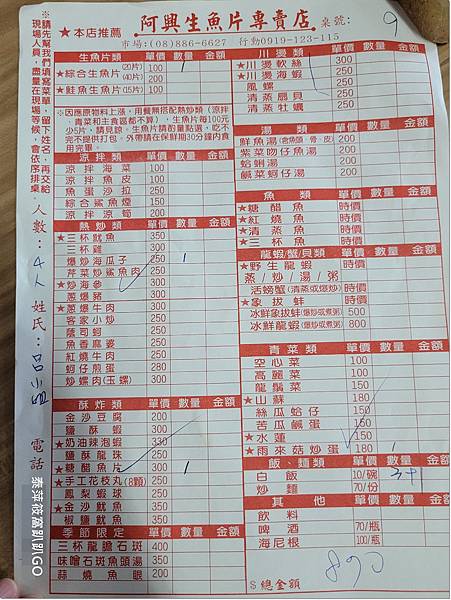 ★本店推薦
阿興生魚片專賣店 桌號: 9
市場:(08)886-6627 行動0919-123-115
※請先幫我們填寫菜單，留下姓名，再交給
現場人員，盡量在現場等候，會依序排桌。
人數：4人 姓氏：呂小姐 電話
生魚片類 單價 數量 金額
★綜合生魚片 (20片) 100 1
(40片) 200
★鮭魚生魚片(15片) 100
※因應原物料上漲，用餐無搭配熱炒類(涼拌
、青菜和主食區都不算)，生魚片每100元
少5片，請見諒。生魚片請酌量點選，吃不
完不提供打包。外帶請在保鮮期30分鐘內食
用完畢。
涼拌類 單價 數量 金額
涼拌海菜 100
涼拌魚皮 100
魚蛋沙拉 250
綜合鯊魚煙 150
涼拌涼筍 200
熱炒類 單價 數量 金額
★三杯魷魚 350
三杯雞 300
爆炒海瓜子 250 1
芹菜炒鯊魚肉 250
★炒海參 300
蔥爆豬 300
★蔥爆牛肉 300
客家小炒 250
蘿蔔蝦 250
魚香麻婆 250
紅燒牛肉 300
蚵仔煎蛋 200
炒螺肉(玉螺) 300
酥炸類 單價 數量 金額
金沙豆腐 200
鹽酥蝦 300
★奶油辣泡蝦 330
鹽酥龍珠 250
★糖醋魚片 300 1
★手工花枝丸(8顆) 250
鳳梨蝦球 250
★金沙魷魚 350
椒鹽魷魚 350
季節限定 單價 數量 金額
三杯龍膽石斑 400
味噌石斑魚頭湯 350
蒜燒魚眼 200
川燙類 單價 數量 金額
★川燙軟絲 300
★川燙海蝦 300
鳳螺 250
清蒸扇貝 250
清蒸牡蠣 250
湯類 單價 數量 金額
鮮魚湯(含魚頭、骨、皮) 200
紫菜吻仔魚湯 200
蛤蜊湯 200
鹹菜蚵仔湯 200
魚類 單價 數量 金額
★糖醋魚 時價
★紅燒魚 時價
★清蒸魚 時價
★三杯魚 時價
龍蝦/蟹/貝類 單價 數量 金額
★野生龍蝦 時價
蒸/炒/湯/粥
活螃蟹(清蒸或爆炒) 時價
★象拔蚌 時價
冰鮮象拔蚌(爆炒或煮粥) 500
冰鮮龍蝦(爆炒或煮粥) 800
青菜類 單價 數量 金額
空心菜 100
高麗菜 100
龍鬚菜 150
★山蘇 180
絲瓜蛤仔 180
苦瓜鹹蛋 180
★水蓮 150
★雨來菇炒蛋 180 1
飯、麵類 單價 數量 金額
白飯 10/碗 3
炒麵 70/份
其他 單價 數量 金額
飲料
啤酒 70/瓶
海尼根 100/瓶
$總金額 890
泰萍莅窩趴趴GO